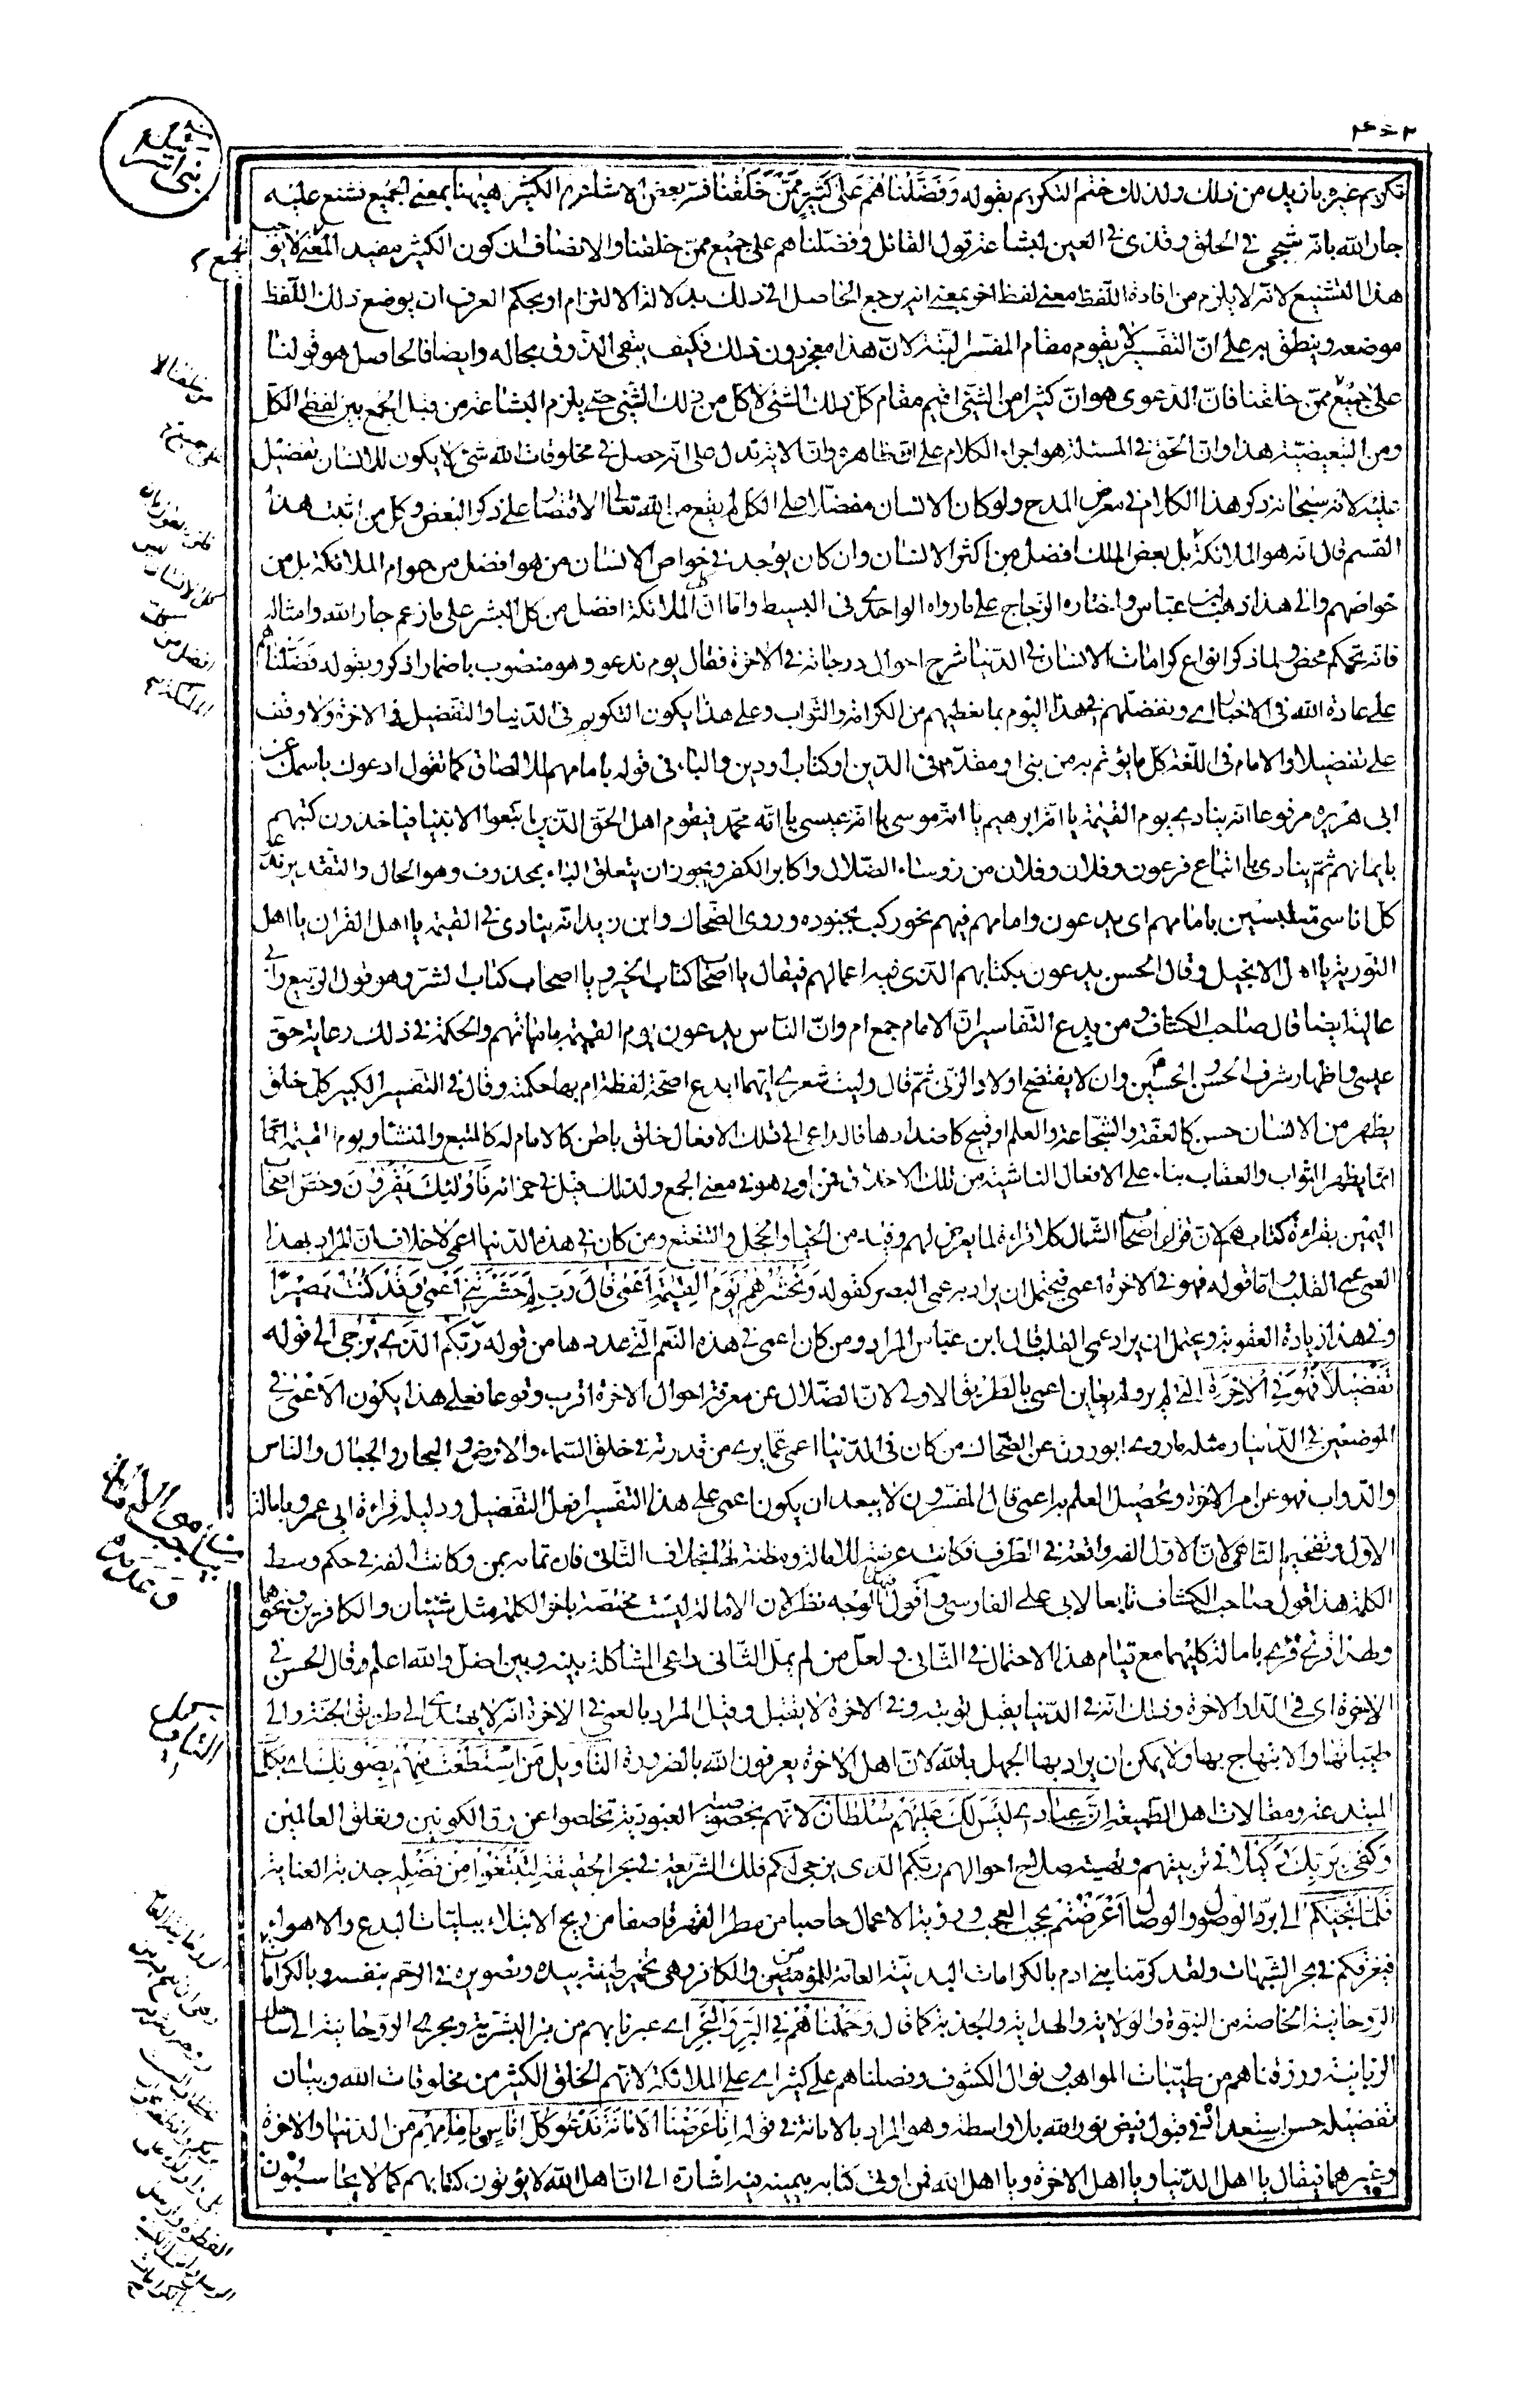 تكريم غيره بازيد من ذلك ولذلك ختم التكريم بقوله وَفَضَّلْنَاهُمْ عَلَى كَثِيرٍ مِمَّنْ خَلَقْنَا فسّر بعض الاشاعرة الكثير ههنا بمعنى الجميع فشنع عليه
جار الله بانه شجى في الحلق وقذى في العين لبشاعة قول القائل وفضلناهم على جميع ممن خلقنا والانصاف ان كون الكثير مفيد المعنى لا يوجب
هذا التشنيع لانه لا يلزم من افادة اللفظ معنى لفظ اخر بمعنى انه يرجع الحاصل الى ذلك بدلالة الالتزام او بحكم العرف ان يوضع ذلك اللفظ
موضعه وينطق به على ان التفسير لا يقوم مقام المفسر البتة لان هذا معجز دون ذلك فكيف يبقى الذوق بحاله وايضا فالحاصل هو قولنا
على جميع ممن خلقنا فان الدعوى هو ان كثيرا من الشئ اقيم مقام كل ذلك الشئ لا كل من ذلك الشئ حتى يلزم البشاعة من قبل الجمع بين لفظى الكل
ومن التبعيضية هذا وان الحق في المسئلة هو اجراء الكلام على ظاهره وان الاية تدل على انه حصل في مخلوقات الله شئ لا يكون للانسان تفضيل
عليه لانه سبحانه ذكر هذا الكلام في معرض المدح ولو كان الانسان مفضلا على الكل لم يقع من الله تعالى الاقتصار على ذكر البعض وكل من اثبت هذا
القسم قال انه هو الملائكة بل بعض الملك افضل من اكثر الانسان وان كان يوجد في خواص الانسان من هو افضل من عوام الملائكة بل من
خواصهم والى هذا ذهب ابن عباس واختاره الزجاج على ما رواه الواحدى في البسيط واما ان الملائكة افضل من كل البشر على ما زعم جار الله وامثاله
فانه تحكم محض ولما ذكر انواع كرامات الانسان في الدنيا شرح احوال درجاته في الاخرة فقال يوم ندعو وهو منصوب باضمار اذكر وبقوله فضلناهم
على عادة الله في الاخبار اى ونفضلهم في هذا اليوم بما نعطيهم من الكرامة والثواب وعلى هذا يكون التكريم في الدنيا والتفضيل في الاخرة ولا وقف
على تفضيلا والامام في اللغة كل ما يؤتم به من نبى او مقدم في الدين او كتاب او دين والباء في قوله بامامهم للالصاق كما تقول ادعوك باسمك عن
ابى هريرة مرفوعا انه ينادى يوم القيمة يا امة ابرهيم يا امة موسى يا امة عيسى يا امة محمد فيقوم اهل الحق الذين اتبعوا الانبياء فياخذون كتبهم
بايمانهم ثم ينادى يا اتباع فرعون وفلان وفلان من رؤساء الضلال واكابر الكفر ويجوز ان يتعلق الباء بمحذوف وهو الحال والتقدير ندعو
كل اناس متلبسين بامامهم اى يدعون وامامهم فيهم نحو ركب بجنوده وروى الضحاك وابن زيد انه ينادى في القيمة يا اهل القران يا اهل
التورية يا اهل الانجيل وقال الحسن يدعون بكتابهم الذى فيه اعمالهم فيقال يا اصحاب كتاب الخير ويا اصحاب كتاب الشر وهو قول الربيع وابى
عالية ايضا قال صاحب الكشاف ومن بدع التفاسير ان الامام جمع ام وان الناس يدعون يوم القيمة بامهاتهم والحكمة في ذلك رعاية حق
عيسى واظهار شرف الحسن والحسين وان لا يفتضح اولاد الزنى ثم قال وليت شعرى ايهما ابدع اصحة لفظة ام بها حكمته وقال في التفسير الكبير كل خلق
يظهر من الانسان حسن كالعفة والشجاعة والعلم او قبيح كاضدادها فالداعى الى تلك الافعال خلق باطن كالامام له كالمتبع والمنشا ويوم القيمة انما
انما يظهر الثواب والعقاب بناء على الافعال الناشية من تلك الاخلاق فمن اوتى هو في معنى الجمع ولذلك قيل في جزائه فَاُولئِكَ يَقْرَؤُنَ وخصّ اصحاب
اليمين بقراءة كتابهم لان قراءة اصحاب الشمال كلا قراءة لما يعرض لهم وفيه من الحياء والخجل والتتعتع ومن كان في هذه الدنيا اعمى لا خلاف ان المراد بهذا
العمى عمى القلب واما قوله فهو في الاخرة اعمى فيحتمل ان يراد به عمى البصر كقوله وَنَحْشُرُهُمْ يَوْمَ الْقِيمَةِ اَعْمَى قَالَ رَبِّ لِمَ حَشَرْتَنِى اَعْمَى وَقَدْ كُنْتُ بَصِيرًا
وفي هذا زيادة العقوبة ويحتمل ان يراد عمى القلب قال ابن عباس المراد ومن كان اعمى في هذه النعم التى عددها من قوله رَبُّكُمُ الَّذِى يُزْجِى الى قوله
تَفْضِيلًا فَهُوَ فِى الْاخِرَةِ التى لم يرو لم يعاين اعمى بالطريق الاولى لان الضلال عن معرفة احوال الاخرة اقرب وقوعا فعلى هذا يكون الاعمى في
الموضعين في الدنيا ومثله ما روى ابو روق عن الضحاك من كان في الدنيا اعمى عما يرى من قدرته في خلق السماء والارض والبحار والجبال والناس
والدواب فهو عن امر الاخرة وتحصيل العلم به اعمى قال المفسرون لا يبعد ان يكون اعمى على هذا التفسير افعل التفضيل ودليله قراءة ابى عمرو بامالة
الاول وتفخيم الثانى لان الاول الفه واقعة في الطرف فكانت عرضة للامالة ومظنة لها بخلاف الثانى فان تمامه بمن وكانت الفه في حكم وسط
الكلمة هذا قول صاحب الكشاف تابعا لابى على الفارسى واقول في الوجه نظر لان الامالة ليست مختصة باخر الكلمة مثل شيبان والكافرين ونحوهما
ولهذا قرئ بامالة كليهما مع قيام هذا الاحتمال في الثانى ولعل من لم يمل الثانى راعى المشاكلة بينه وبين اضل والله اعلم وقال الحسن في
الاخرة اى في الدار الاخرة وذلك انه في الدنيا يقبل توبته وفي الاخرة لا يقبل وقيل المراد بالعمى في الاخرة انه لا يهتدى الى طريق الجنة والى
طيباتها والابتهاج بها ولا يمكن ان يراد بها الجهل بالله لان اهل الاخرة يعرفون الله بالضرورة التاويل مَنِ اسْتَطَعْتَ مِنْهُمْ بِصَوْتِكَ
المبتدعة ومقالات اهل الطبيعة اِنَّ عِبَادِى لَيْسَ لَكَ عَلَيْهِمْ سُلْطَانٌ لانهم بخصوصية العبودية تخلصوا عن رق الكونين وتعلق العالمين
وَكَفَى بِرَبِّكَ وَكِيلًا في تربيتهم وتهيئة صلاح احوالهم ربكم الذى يزجى لكم فلك الشريعة في بحر الحقيقة لِتَبْتَغُوا مِنْ فَضْلِهِ جذبة العناية
فَلَمَّا نَجَّيكُمْ الى بر الوصول والوصال اَعْرَضْتُمْ بحجب العجب ورؤية الاعمال حاصبا من مطر القهر قاصفا من ريح الابتلاء ببليات البدع والاهواء
فيغرقكم في بحر الشبهات ولقد كرمنا بنى ادم بالكرامات البدنية العامة للمؤمن والكافر وهى تخمير طينته بيده وتصويره في الرحم بنفسه وبالكرامات
الروحانية الخاصة من النبوة والولاية والهداية والجذبة كما قال وَحَمَلْنَاهُمْ فِى الْبَرِّ وَالْبَحْرِ اى عبرنا بهم من بر البشرية وبحر الروحانية الى ساحل
الربانية ورزقناهم من طيبات المواهب ونوال الكشوف وفضلناهم على كثير اى على الملائكة لانهم الخلق الكثير من مخلوقات الله وبيان
تفضيله حسن استعداده في قبول فيض نور الله بلا واسطة وهو المراد بالامانة في قوله اِنَّا عَرَضْنَا الْاَمَانَةَ نَدْعُو كُلَّ اُنَاسٍ بِاِمَامِهِمْ من الدنيا والاخرة
وغيرهما فيقال يا اهل الدنيا ويا اهل الاخرة ويا اهل الله فمن اوتى كتابه بيمينه فيه اشارة الى ان اهل الله لا يؤتون كتابهم كما لا يحاسبون